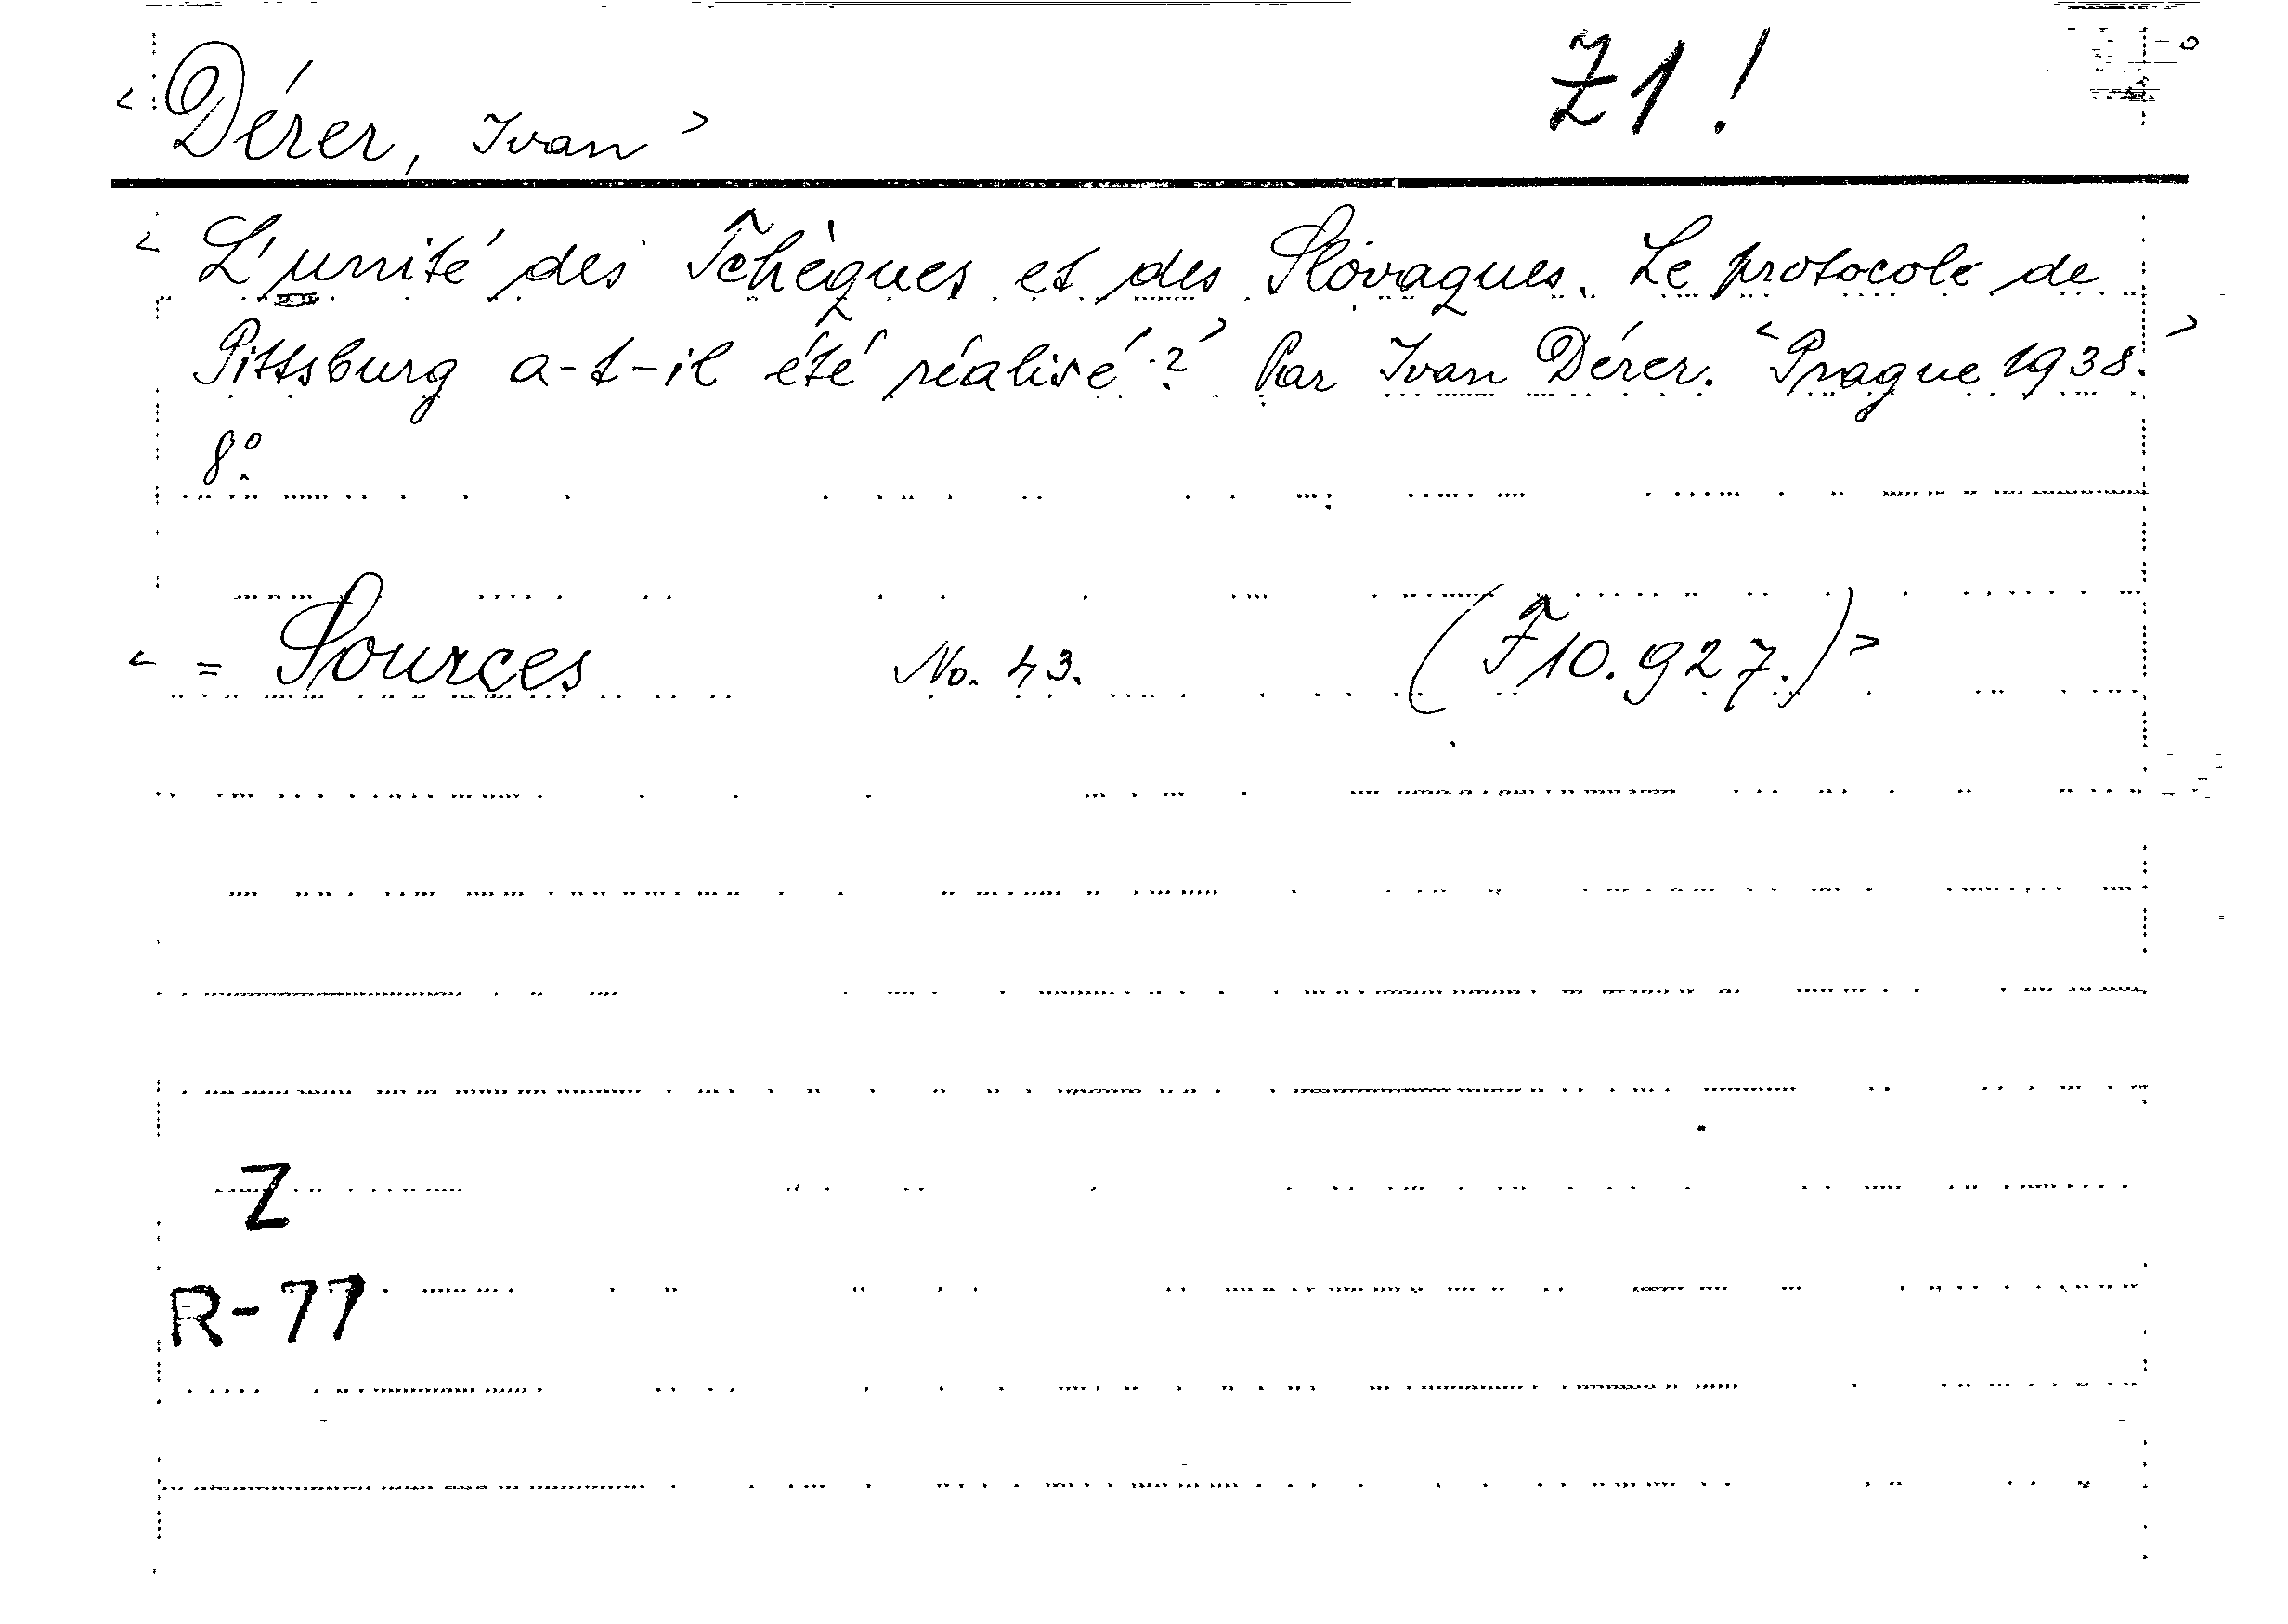 < Dérer, Ivan > Z1!
< L'unité des Tchèques et des Slovaques. Le protocole de
Pittsburg a-t-il été réalisé?> Par Ivan Dérer. <Prague 1938.>
8°.
< = Sources No. 43. (F10.927.)>
Z
R-77